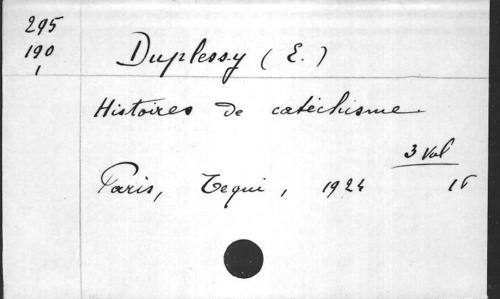 295
190
1
Duplessy (E.)
Histoires de catéchisme
3 vol
Paris, Tequi, 1924